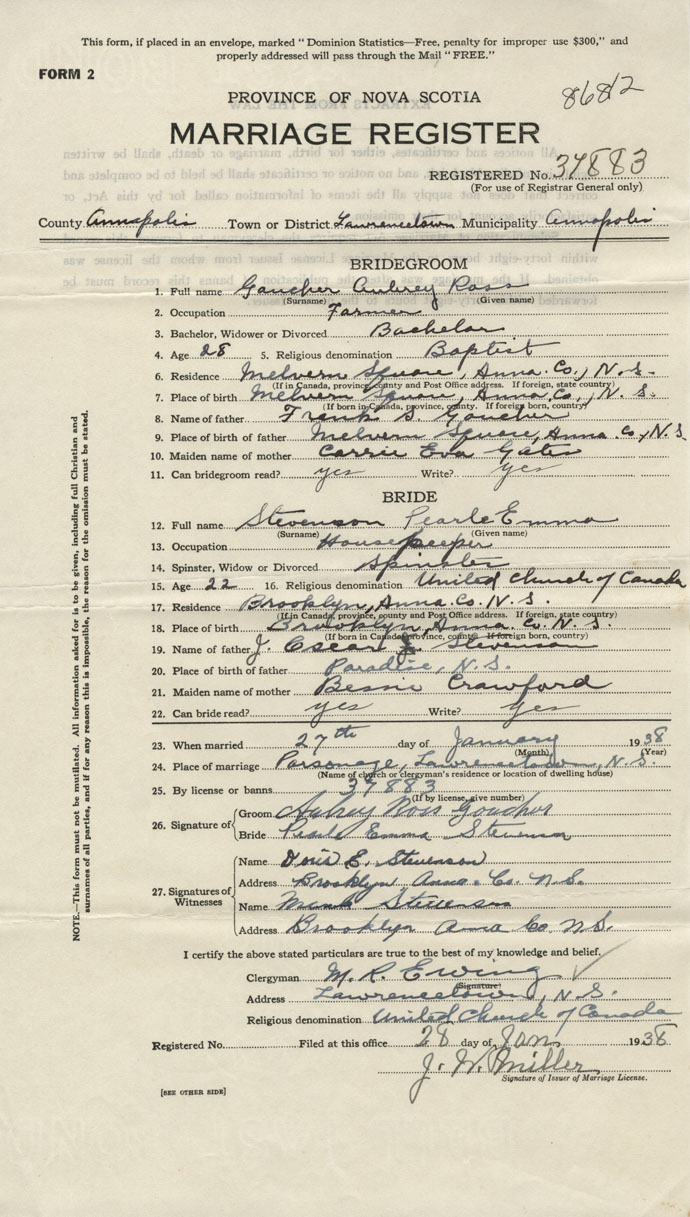 This form, if placed in an envelope, marked "Dominion Statistics—Free, penalty for improper use $300," and
properly addressed will pass through the Mail "FREE."
FORM 2
8682
PROVINCE OF NOVA SCOTIA
MARRIAGE REGISTER
REGISTERED No. 37883
(For use of Registrar General only)
County Annapolis Town or District Lawrencetown Municipality Annapolis
BRIDEGROOM
1. Full name Goucher Aubrey Ross
(Surname) (Given name)
2. Occupation Farmer
3. Bachelor, Widower or Divorced Bachelor
4. Age 28 5. Religious denomination Baptist
6. Residence Melvern Square, Anna. Co., N.S.
(If in Canada, province, county and Post Office address. If foreign, state country)
7. Place of birth Melvern Square, Anna. Co., N.S.
(If born in Canada, province, county. If foreign born, country)
8. Name of father Frank S. Goucher
9. Place of birth of father Melvern Square, Anna. Co., N.S.
10. Maiden name of mother Carrie Eva Gates
11. Can bridegroom read? yes Write? yes
BRIDE
12. Full name Stevenson Pearle Emma
(Surname) (Given name)
13. Occupation Housekeeper
14. Spinster, Widow or Divorced Spinster
15. Age 22 16. Religious denomination United Church of Canada
17. Residence Brooklyn, Anna. Co. N.S.
(If in Canada, province, county and Post Office address. If foreign, state country)
18. Place of birth Brooklyn, Anna. Co. N.S.
(If born in Canada, province, county. If foreign born, country)
19. Name of father J. Oscar Stevenson
20. Place of birth of father Paradise, N.S.
21. Maiden name of mother Bessie Crawford
22. Can bride read? yes Write? yes
23. When married 27th day of January 1938
(Month) (Year)
24. Place of marriage Parsonage, Lawrencetown, N.S.
(Name of church or clergyman's residence or location of dwelling house)
25. By license or banns 37883
(If by license, give number)
26. Signature of Groom Aubrey Ross Goucher
Bride Pearle Emma Stevenson
27. Signatures of Witnesses
Name Doris E. Stevenson
Address Brooklyn Anna. Co. N.S.
Name Stevenson
Address Brooklyn Anna Co N.S.
I certify the above stated particulars are true to the best of my knowledge and belief.
Clergyman M. R. Ewing
(Signature)
Address Lawrencetown, N.S.
Religious denomination United Church of Canada
Registered No. Filed at this office 28 day of Jan 1938
J. W. Miller
Signature of Issuer of Marriage License.
[SEE OTHER SIDE]
NOTE.—This form must not be mutilated. All information asked for is to be given, including full Christian and
surnames of all parties, and if for any reason this is impossible, the reason for the omission must be stated.